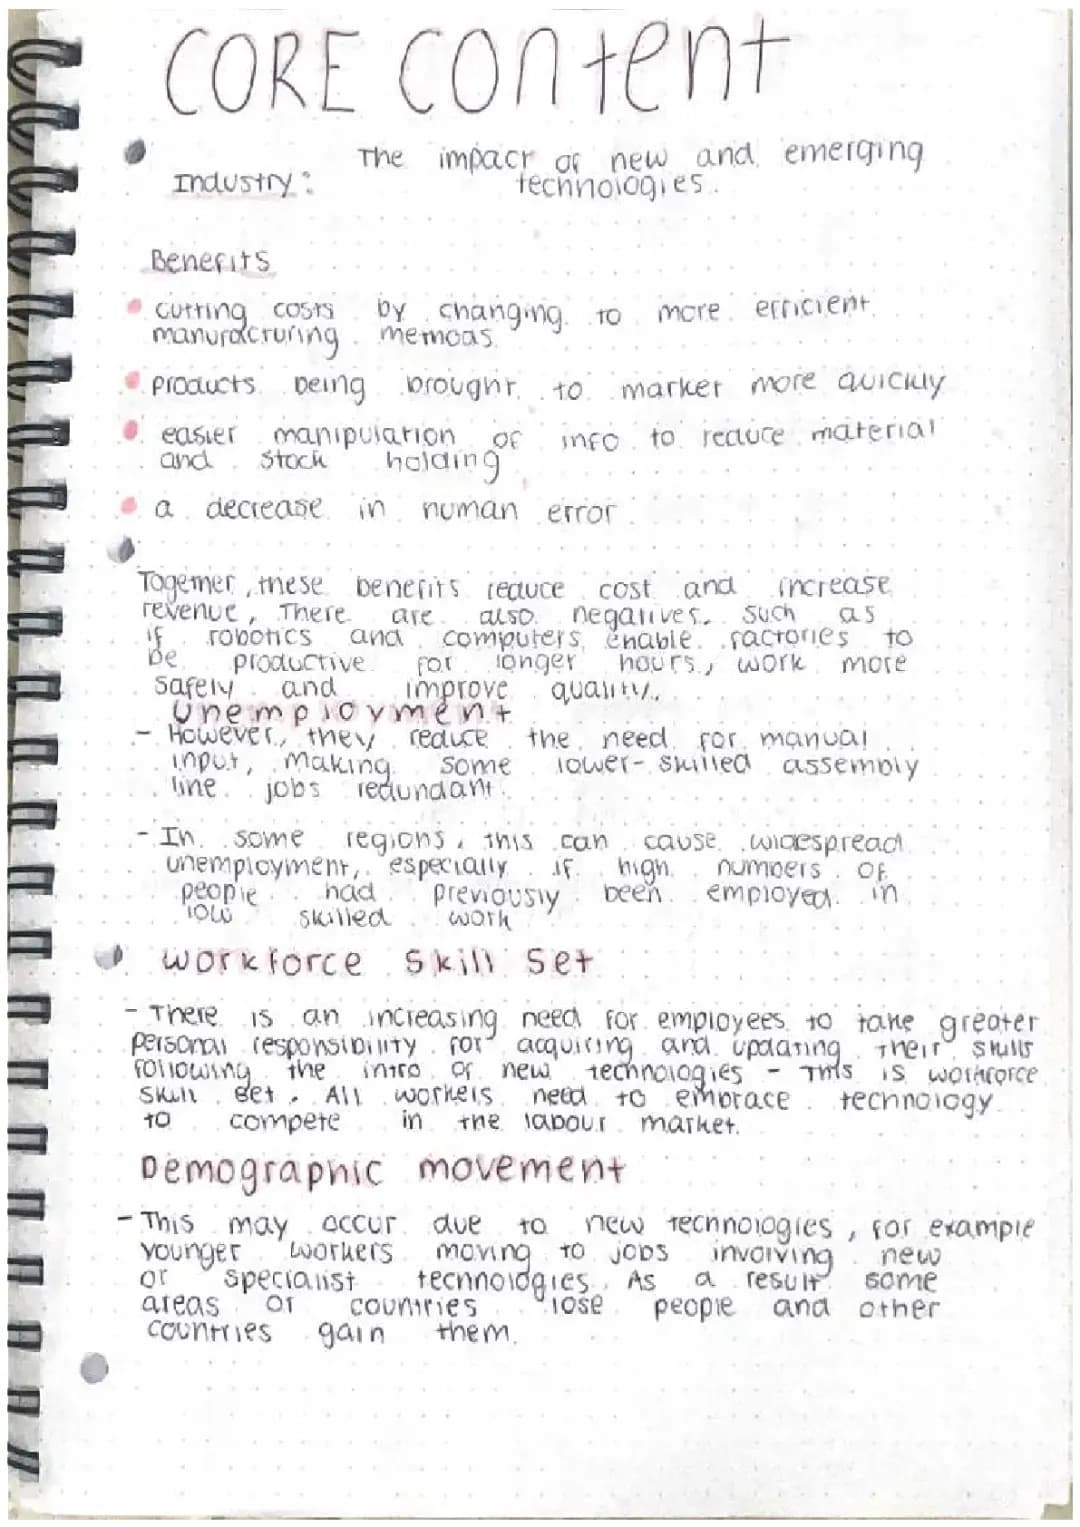 CORE content
The impact of new and emerging
Industry: technologies.
Benefits
cutting costs by changing to more efficient
manufacturing methods
products being brought to market more quickly
easier manipulation of info to reduce material
and stock holding
a decrease in human error
Together, these benefits reduce cost and increase
revenue, There are also negatives. Such as
if robotics and computers, enable factories to
be productive for longer hours, work more
safely and improve quality.
Unemployment
- However, they reduce the need for manual
input, making some lower-skilled assembly
line jobs redundant.
- In some regions, this can cause widespread
unemployment, especially if high numbers of
people had previously been employed in
low skilled work
workforce Skill Set
- There is an increasing need for employees to take greater
personal responsibility for acquiring and updating their skills
following the intro of new technologies - This is workforce
skill set. All workers need to embrace technology
to compete in the labour market.
Demographic movement
- This may occur due to new technologies, for example
younger workers moving to jobs involving new
or specialist technologies. As a result some
areas or countries lose people and other
countries gain them.